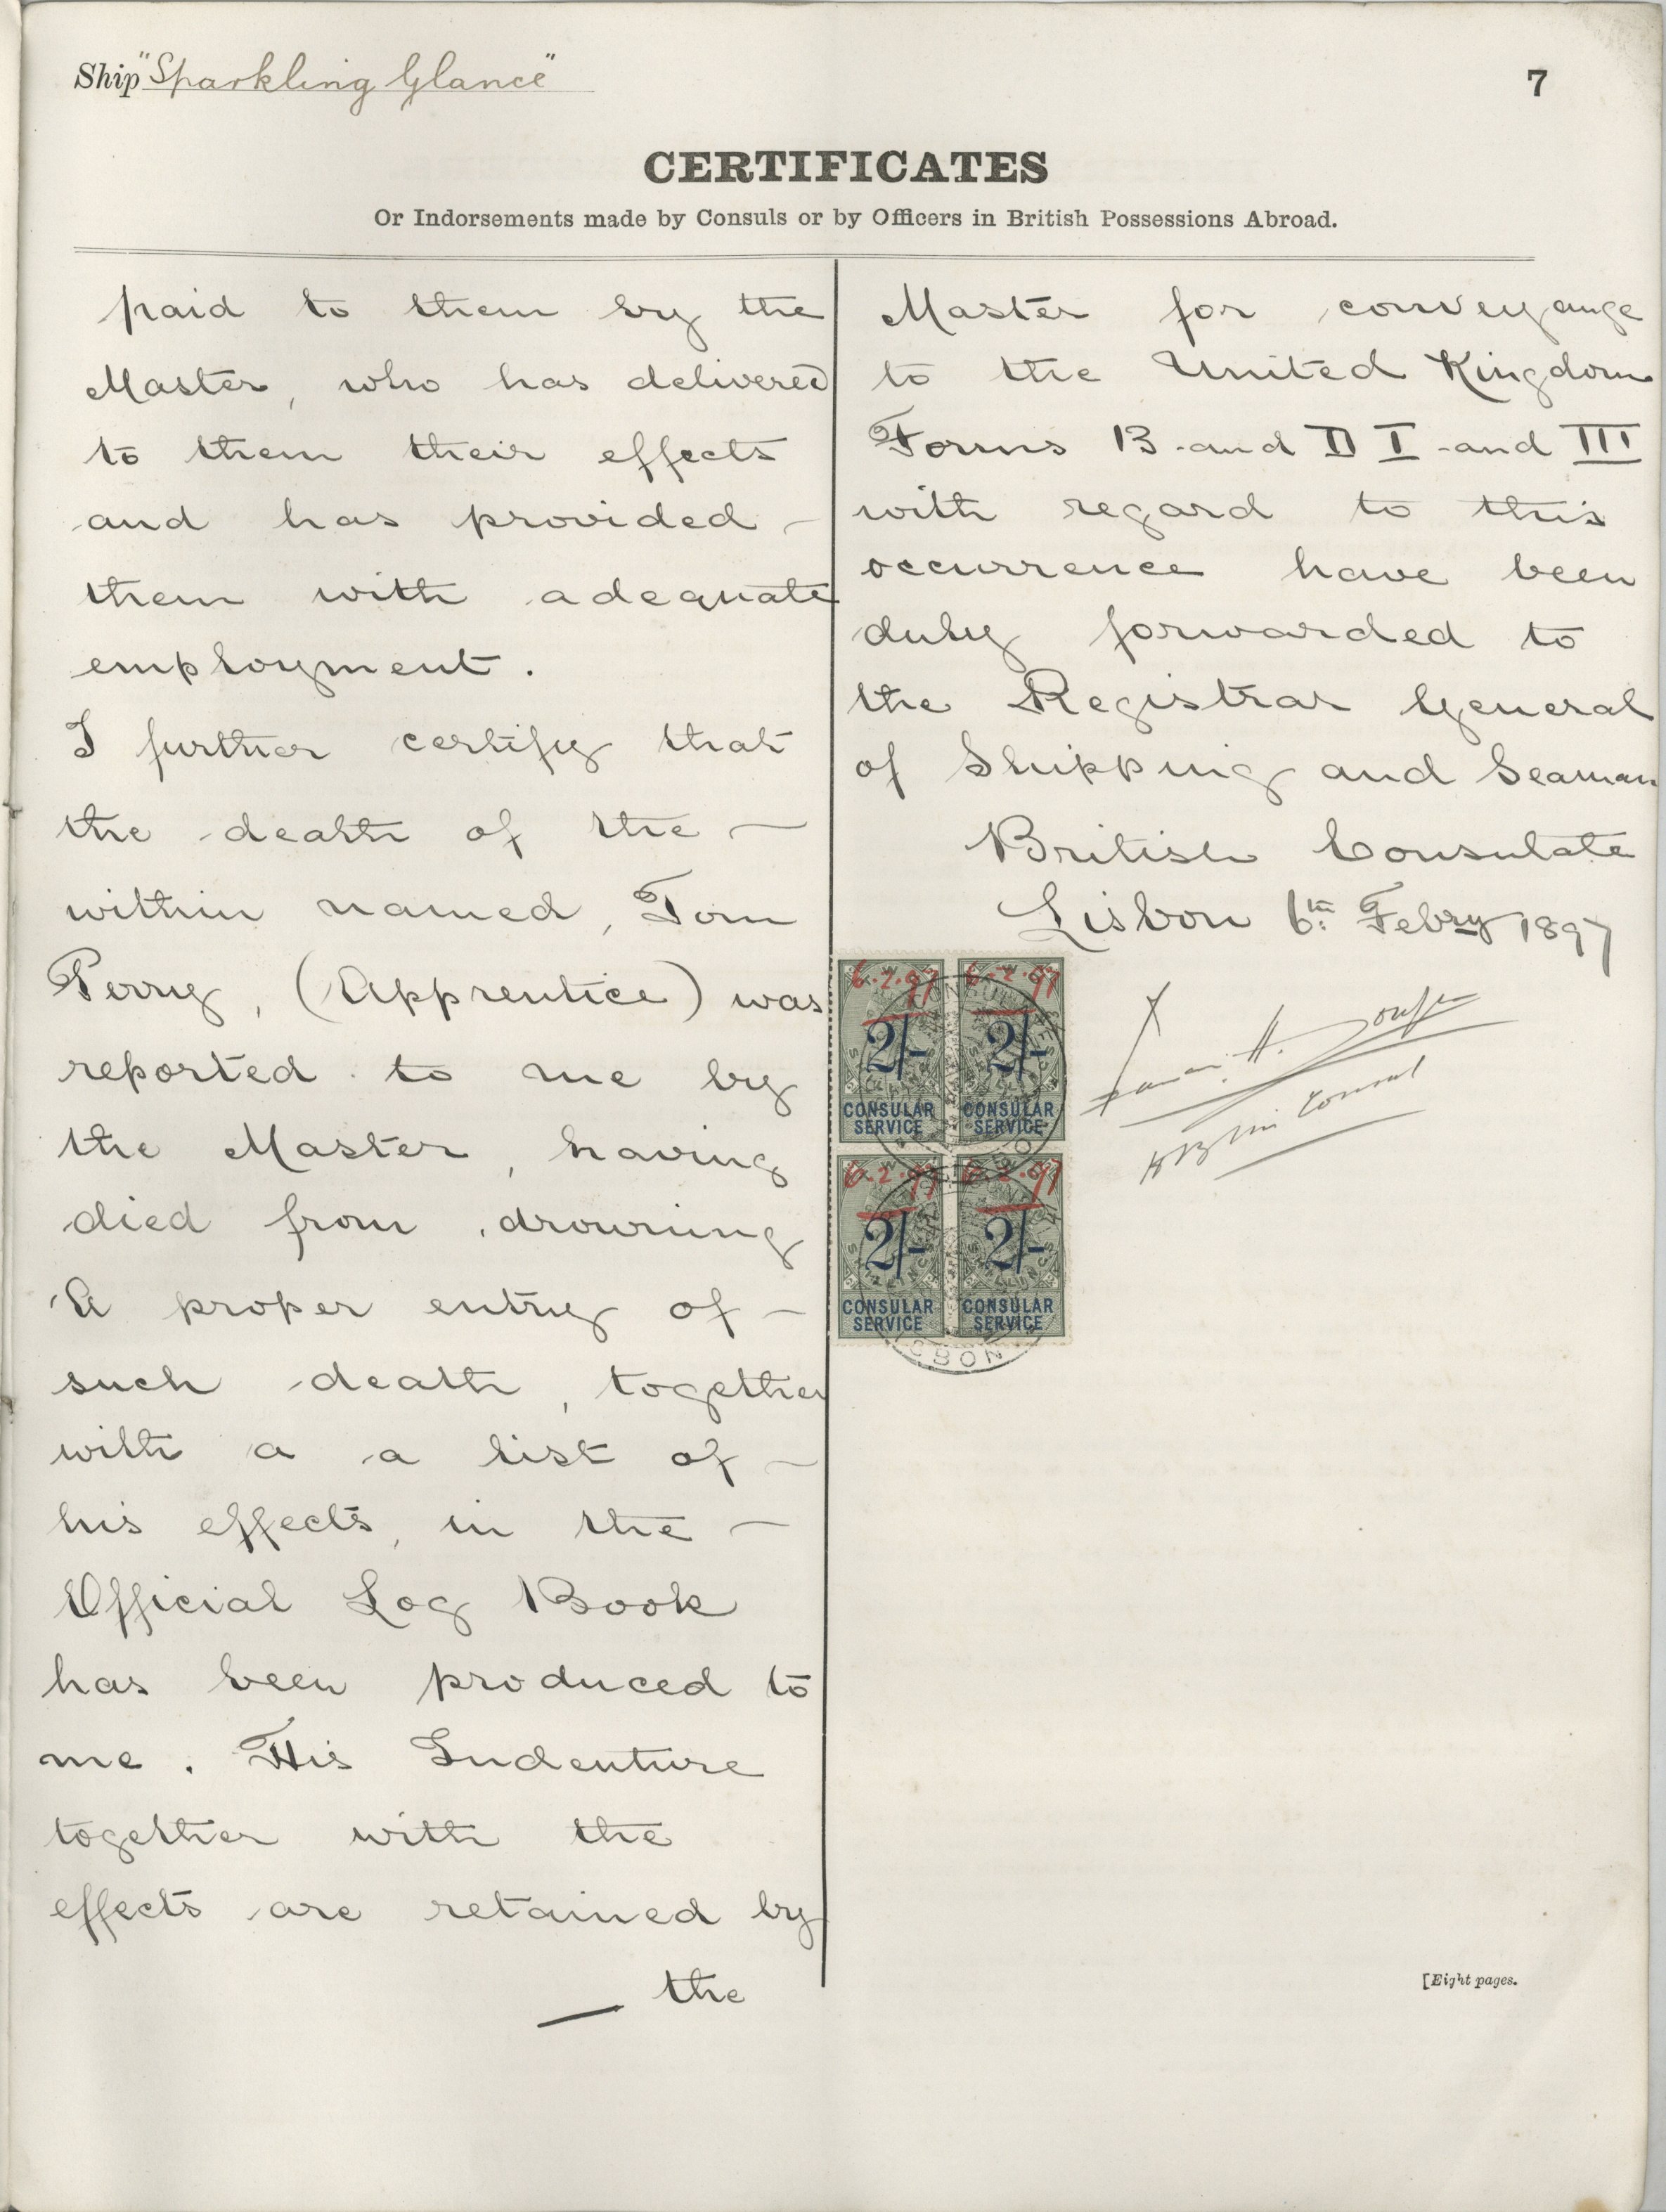 Ship "Sparkling Glance"
7
CERTIFICATES
Or Indorsements made by Consuls or by Officers in British Possessions Abroad.
paid to them by the
Master, who has delivered
to them their effects
and has provided -
them with adequate
employment.
I further certify that
the death of the —
within named, Tom
Perry, (Apprentice) was
reported to me by
the Master, having
died from drowning
A proper entry of —
such death, together
with a a list of —
his effects, in the —
Official Log Book
has been produced to
me. His Indenture
together with the
effects are retained by
— the
Master for conveyange
to the United Kingdom
Forms B and D I and III
with regard to this
occurrence have been
duly forwarded to
the Registrar General
of Shipping and Seaman
British Consulate
Lisbon 6th Febry 1897
6.2.97 6.2.97
2/- 2/-
CONSULAR SERVICE CONSULAR SERVICE
6.2.97 6.2.97
2/- 2/-
CONSULAR SERVICE CONSULAR SERVICE
Consul
[Eight pages.